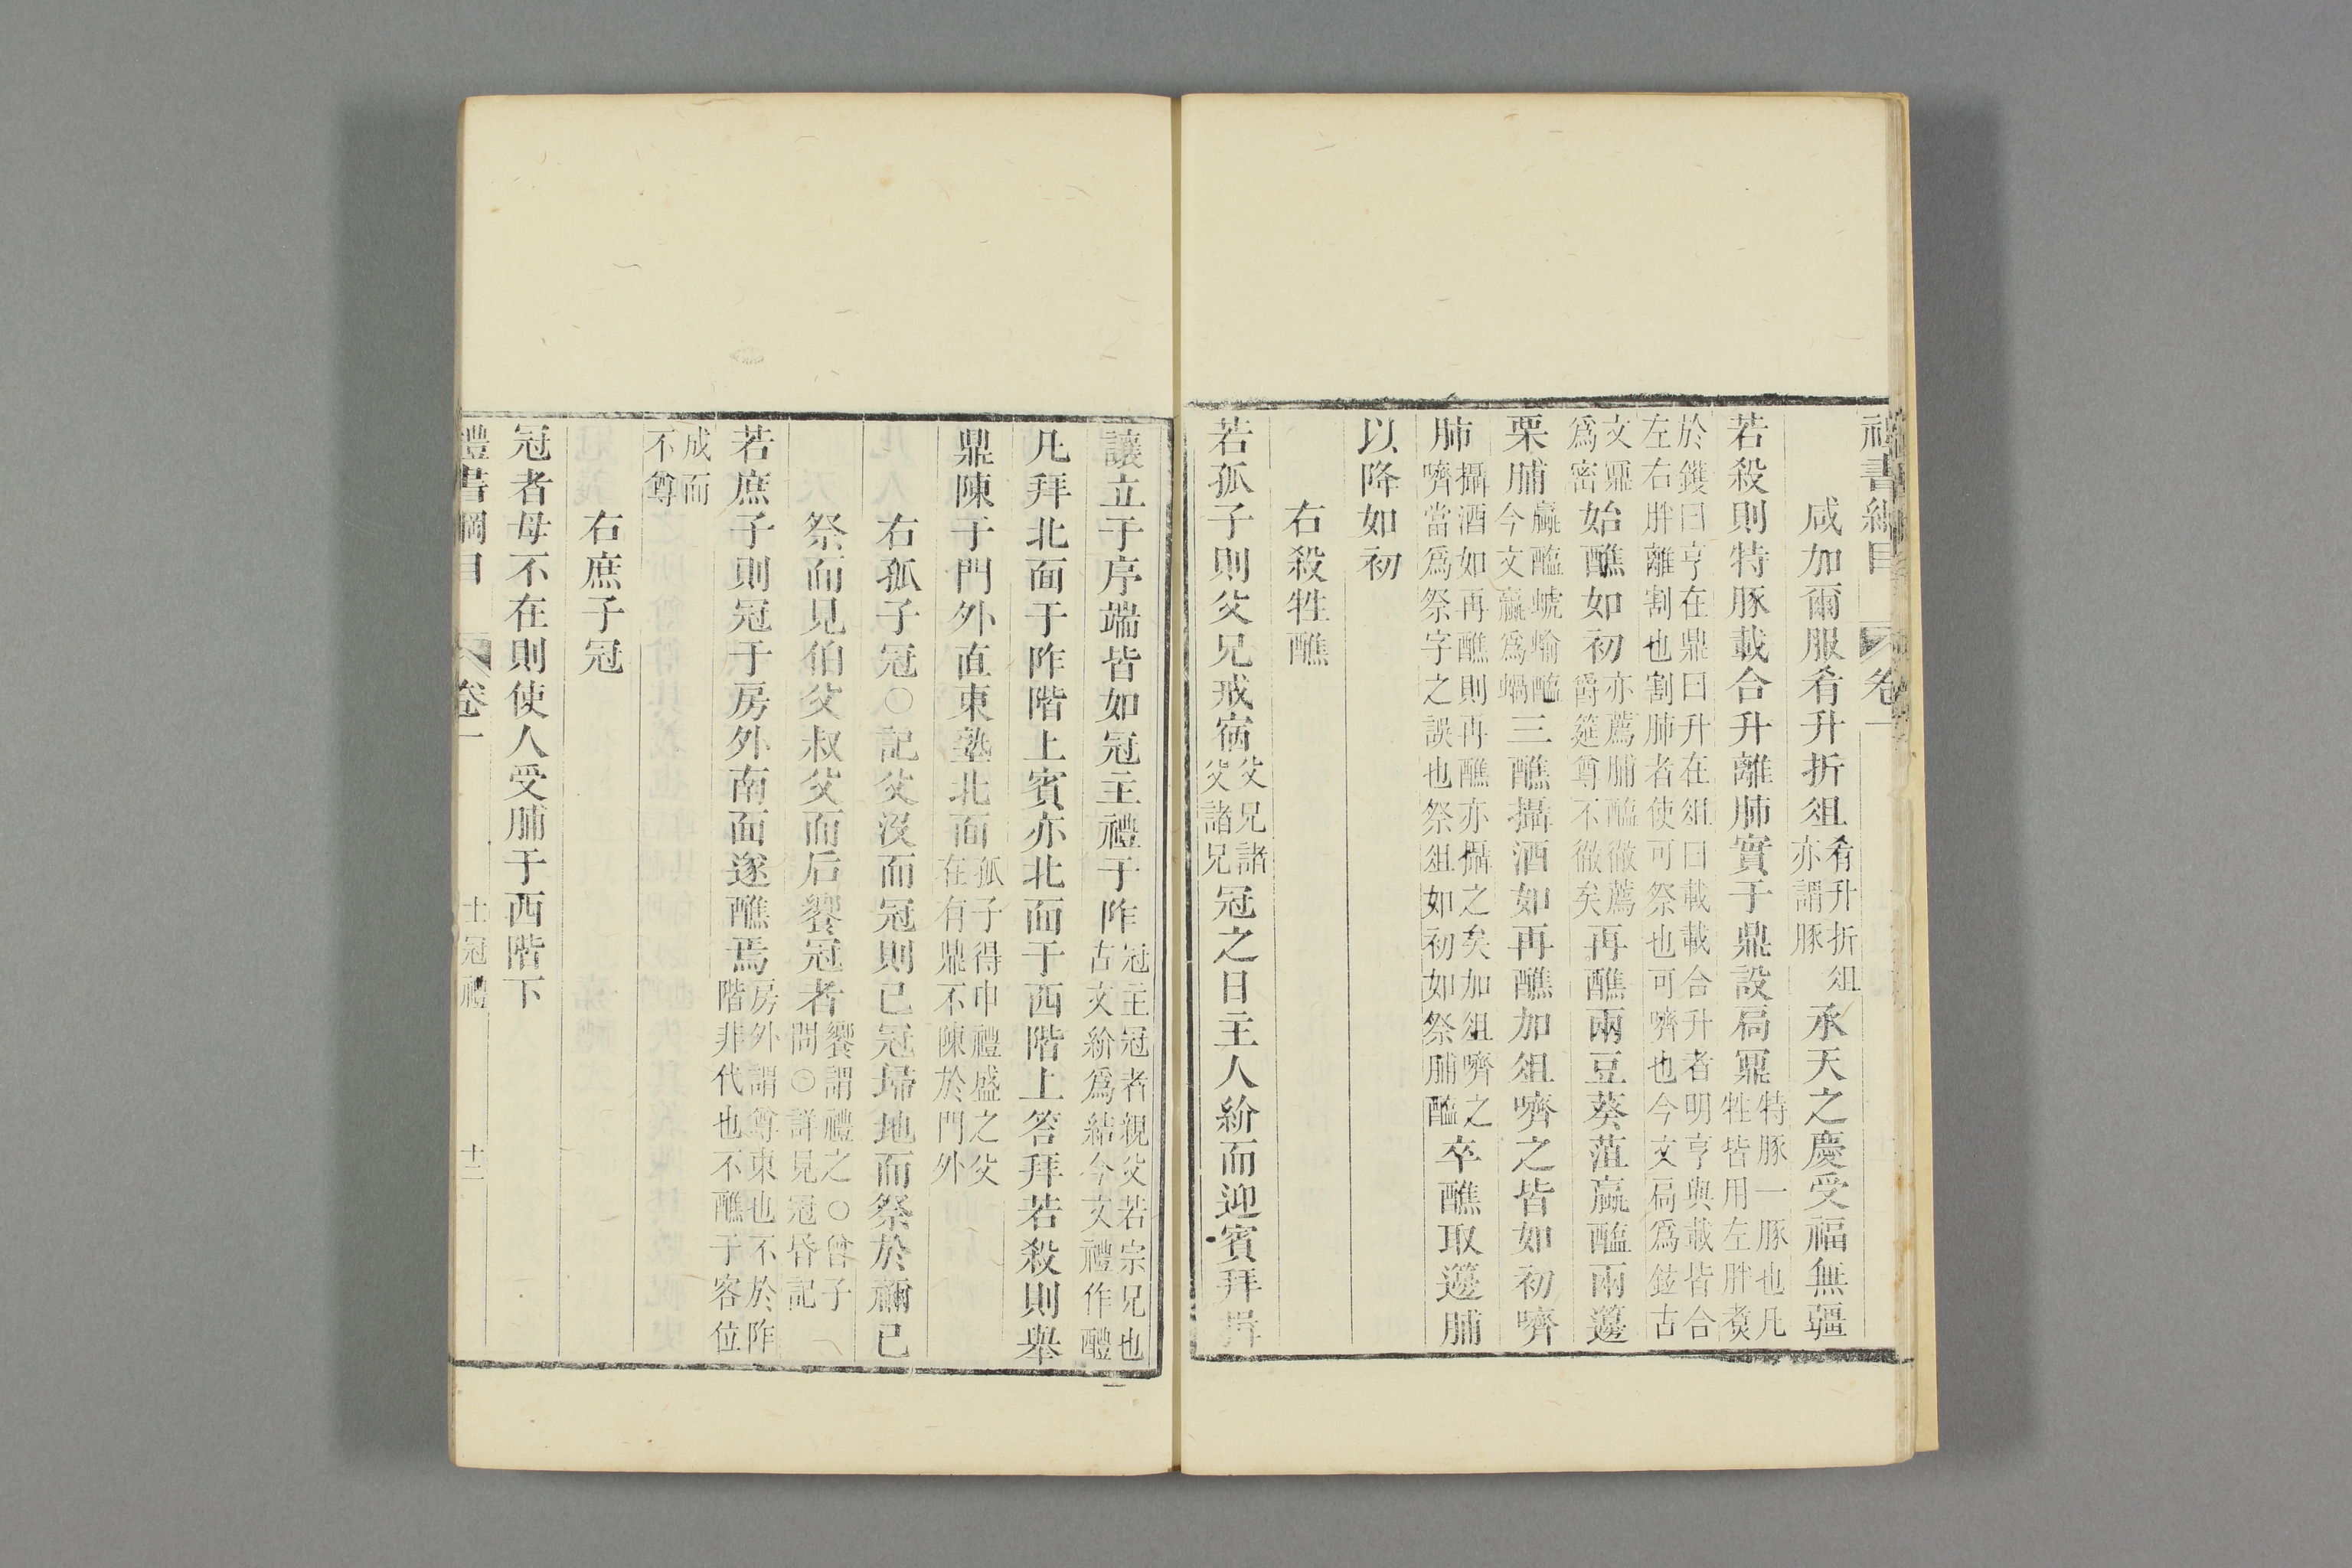 禮書綱目 卷一
咸加爾服肴升折俎肴升折俎亦謂豚承天之慶受福無疆
若殺則特豚載合升離肺實于鼎設扃鼏特豚一豚也凡牲皆用左胖煑
於鑊曰亨在鼎曰升在俎曰載載合升者明亨與載皆合左右胖離割也割肺者使可祭也可嚌也今文扃爲鉉古
文鼏爲密始醮如初亦薦脯醢徹薦爵筵尊不徹矣再醮兩豆葵菹蠃醢兩籩
栗脯蠃醢蜬蝓醢今文蠃爲蝸三醮攝酒如再醮加俎嚌之皆如初嚌
肺攝酒如再醮則再醮亦攝之矣加俎嚌之嚌當爲祭字之誤也祭俎如初如祭脯醢卒醮取籩脯
以降如初
右殺牲醮
若孤子則父兄戒宿父兄諸父諸兄冠之日主人紒而迎賓拜揖
讓立于序端皆如冠主禮于阼冠主冠者親父若宗兄也古文紒爲結今文禮作醴
凡拜北面于阼階上賓亦北面于西階上答拜若殺則舉
鼎陳于門外直東塾北面孤子得申禮盛之父在有鼎不陳於門外
右孤子冠○記父沒而冠則已冠埽地而祭於禰已
祭而見伯父叔父而后饗冠者饗謂禮之○曾子問○詳見冠昏記
若庶子則冠于房外南面遂醮焉房外謂尊東也不於阼階非代也不醮于客位
成而不尊
右庶子冠
冠者母不在則使人受脯于西階下
禮書綱目 卷一 士冠禮 十二